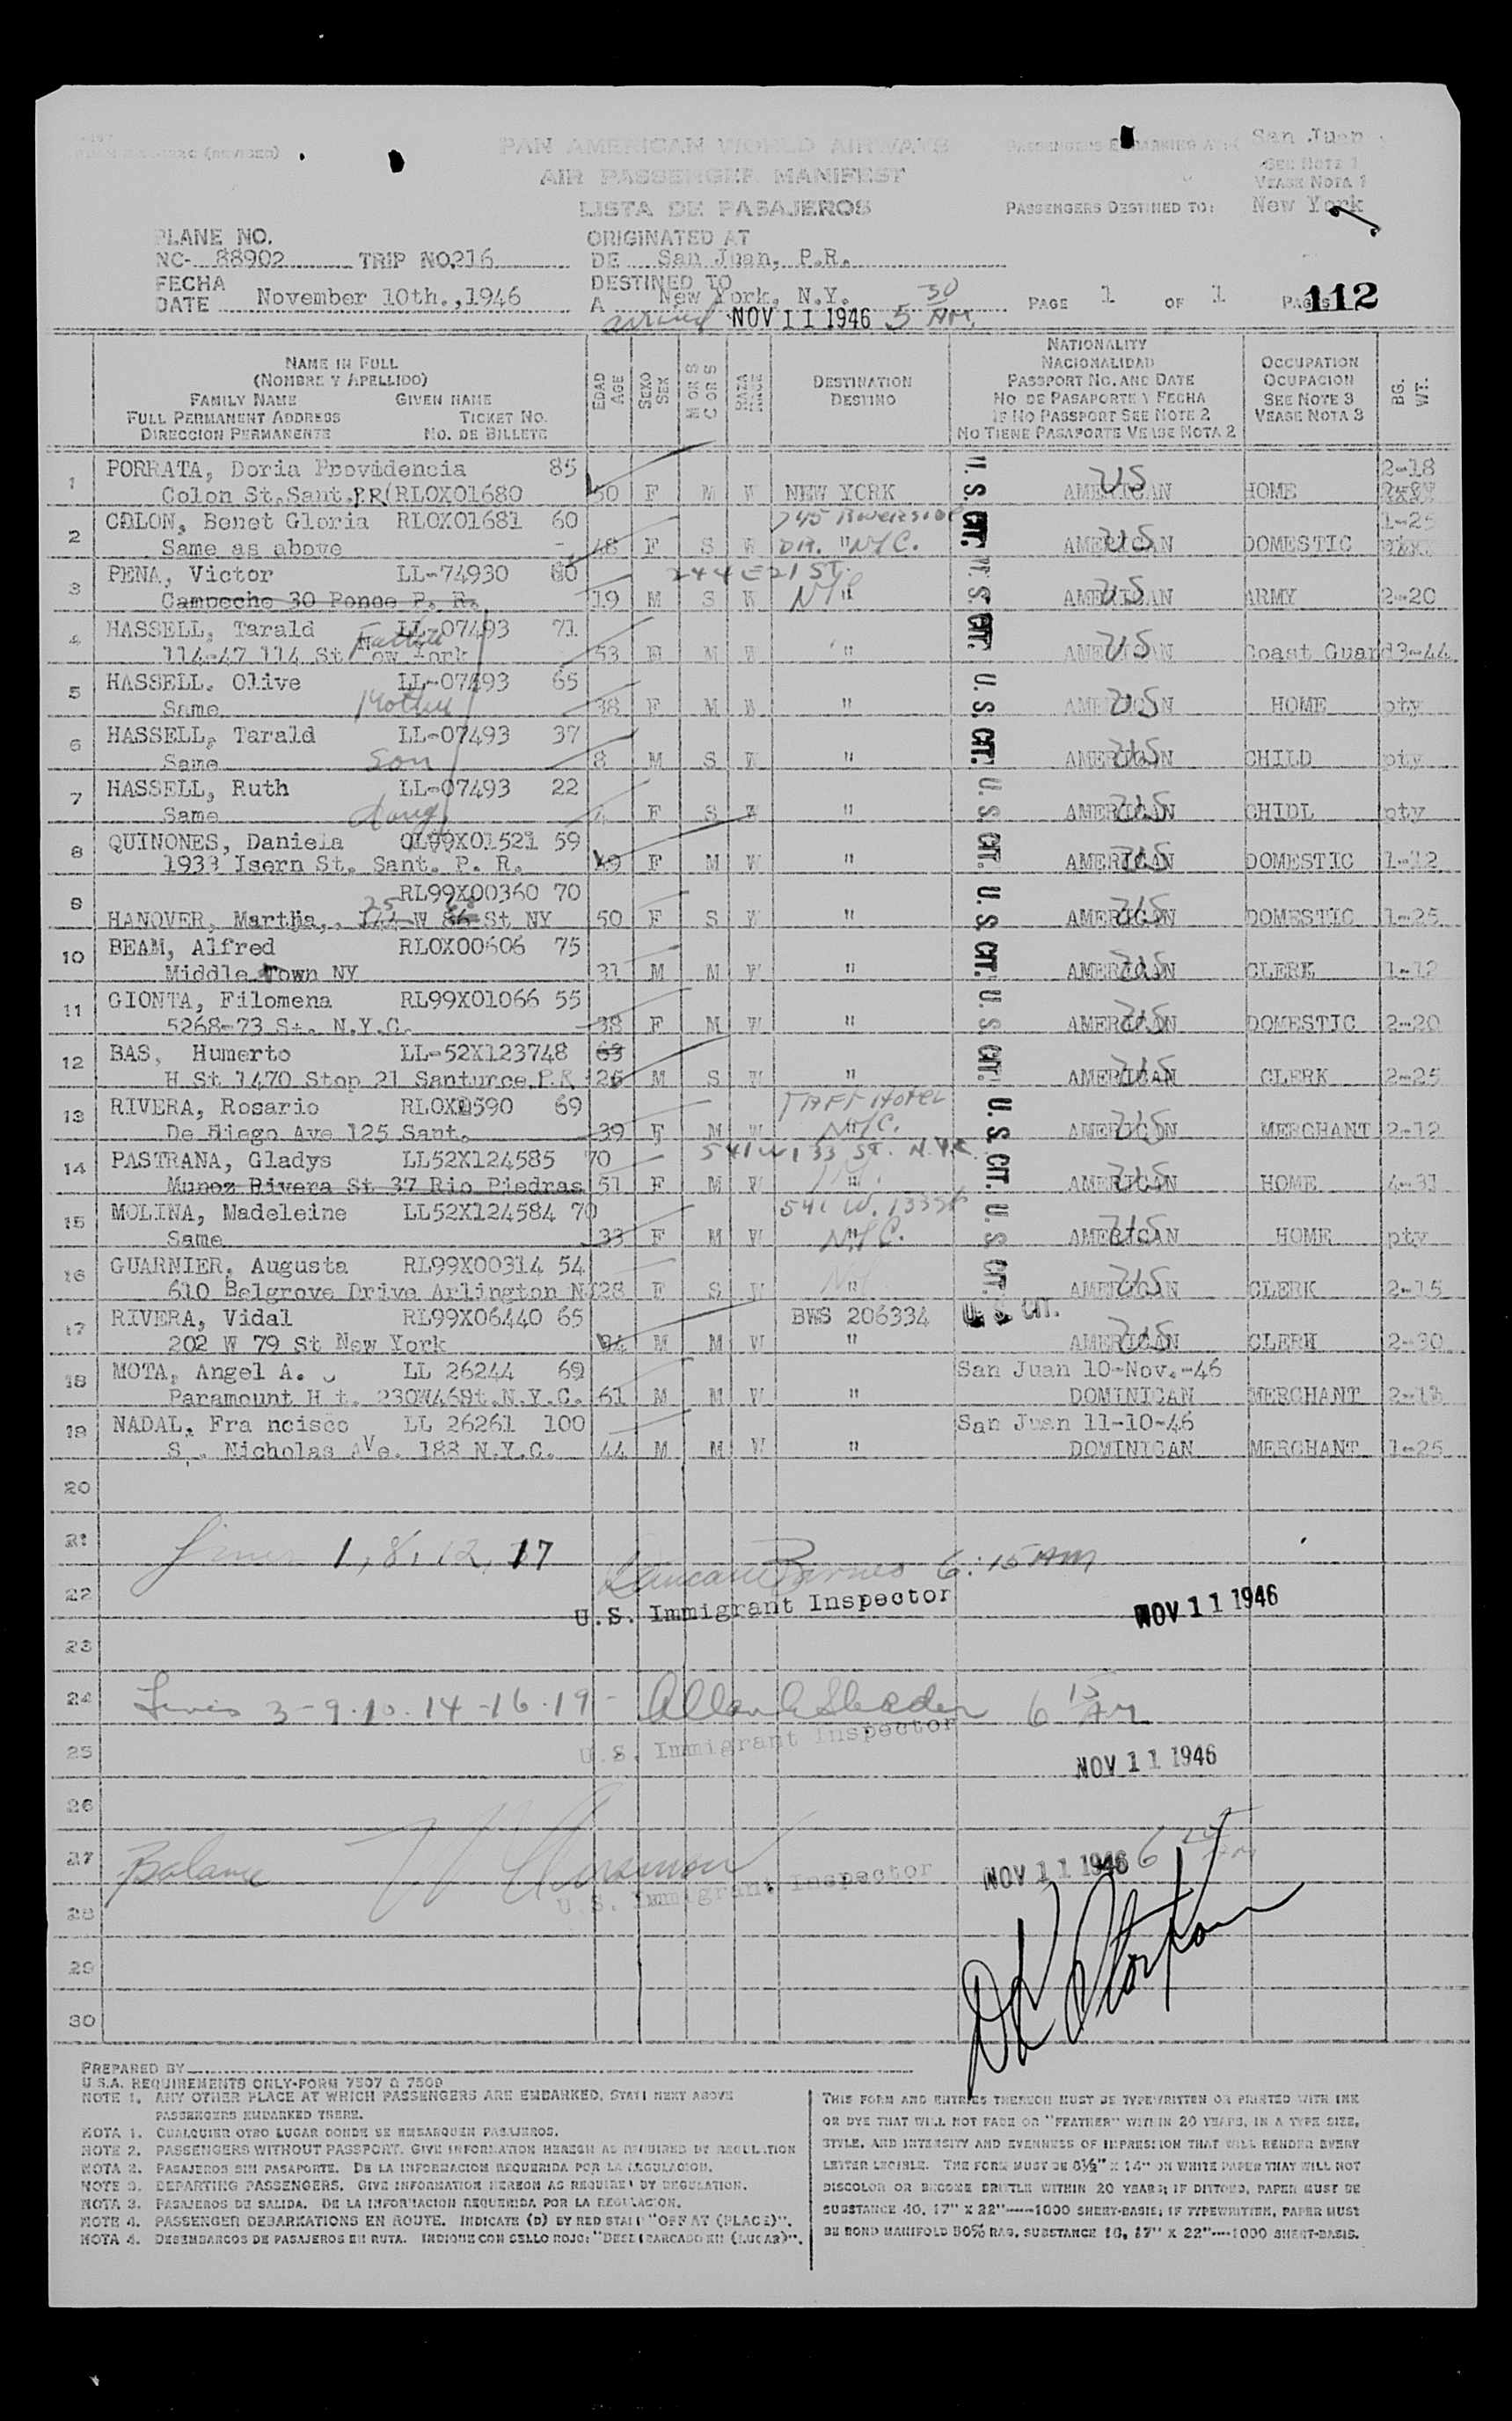 PAN AMERICAN WORLD AIRWAYS
AIR PASSENGER MANIFEST
LISTA DE PASAJEROS
PASSENGERS EMBARKING AT: San Juan
SEE NOTE 1
VEASE NOTA 1
PASSENGERS DESTINED TO: New York
PLANE NO.
NC- 88902 TRIP NO. 216
ORIGINATED AT
DE San Juan, P.R.
FECHA
DATE November 10th.,1946
DESTINED TO
A New York, N.Y.
arrived NOV 11 1946 5 30 AM.
PAGE 1 OF 1 PAGES 112
NAME IN FULL
(NOMBRE Y APELLIDO)
FAMILY NAME GIVEN NAME
FULL PERMANENT ADDRESS TICKET NO.
DIRECCION PERMANENTE NO. DE BILLETE
EDAD AGE
SEXO SEX
M OR S
C OR S
RAZA RACE
DESTINATION
DESTINO
NATIONALITY
NACIONALIDAD
PASSPORT NO. AND DATE
NO DE PASAPORTE Y FECHA
IF NO PASSPORT SEE NOTE 2
NO TIENE PASAPORTE VEASE NOTA 2
OCCUPATION
OCUPACION
SEE NOTE 3
VEASE NOTA 3
BG. WT.
1 PORRATA, Doria Providencia 85 2-18
Colon St.Sant.P.R(RLOX01680 50 F M W NEW YORK AMERICAN US HOME
2 COLON, Benet Gloria RLOX01681 60 745 Riverside 1-25
Same as above 48 F S W DR. " NYC. AMERICAN US DOMESTIC
3 PENA, Victor LL-74930 80 244 E 21 ST.
Campeche 30 Ponce P. R. 19 M S W " NYC AMERICAN US ARMY 2-20
4 HASSELL, Tarald LL-07493 71 Father
114-47 114 St New York 53 M M W " AMERICAN US Coast Guard 3-44
5 HASSELL. Olive LL-07493 65
Same Mother 38 F M W " AMERICAN US HOME pty
6 HASSELL, Tarald LL-07493 37
Same Son 8 M S W " AMERICAN US CHILD pty
7 HASSELL, Ruth LL-07493 22
Same daug F S W " AMERICAN US CHIDL pty
8 QUINONES, Daniela OL99X01521 59
1933 Isern St. Sant. P. R. 49 F M W " AMERICAN US DOMESTIC 1-12
9 RL99X00360 70
HANOVER, Martha, W St NY 50 F S W " AMERICAN US DOMESTIC 1-25
10 BEAM, Alfred RLOX00606 75
Middle Town NY 31 M M W " AMERICAN US CLERK 1-12
11 GIONTA, Filomena RL99X01066 55
5268-73 St. N.Y.C. 38 F M W " AMERICAN US DOMESTIC 2-20
12 BAS, Humerto LL-52X123748 63
H St 1470 Stop 21 Santurce P.R 26 M S W " AMERICAN US CLERK 2-25
13 RIVERA, Rosario RLOX0590 69 TAFT Hotel
De Diego Ave 125 Sant. 39 F M W " NYC. AMERICAN US MERCHANT 2-12
14 PASTRANA, Gladys LL52X124585 70 541 W 133 ST. N.Y.C.
Munoz Rivera St 37 Rio Piedras 51 F M W " AMERICAN US HOME 4-31
15 MOLINA, Madeleine LL52X124584 70 541 W. 133 St
Same 33 F M W " NYC. AMERICAN US HOME pty
16 GUARNIER, Augusta RL99X00314 54
610 Belgrove Drive Arlington NJ 28 F S W " AMERICAN US CLERK 2-15
17 RIVERA, Vidal RL99X06440 65 BWS 206334
202 W 79 St New York 34 M M W " AMERICAN US CLERK 2-30
18 MOTA, Angel A. LL 26244 69 San Juan 10-Nov.-46
Paramount H t. 230W46St.N.Y.C. 61 M M W " DOMINICAN MERCHANT 2-13
19 NADAL, Fra ncisco LL 26261 100 San Juan 11-10-46
S . Nicholas Ave. 188 N.Y.C. 44 M M W " DOMINICAN MERCHANT 1-25
U.S. CIT. U.S. CIT. U.S. CIT. U.S. CIT. U.S. CIT. U.S. CIT. U.S. CIT. U.S. CIT.
U S CIT.
20
21 Lines 1, 8, 12, 17 6:15 AM
22 U.S. Immigrant Inspector NOV 11 1946
23
24 Lines 3-9-10-14-16-19- 6 15 AM
25 U.S. Immigrant Inspector NOV 11 1946
26
27 Balance NOV 11 1946 6
28 U.S. Immigrant Inspector
29
30
PREPARED BY
U.S.A. REQUIREMENTS ONLY-FORM 7507 & 7509
NOTE 1. ANY OTHER PLACE AT WHICH PASSENGERS ARE EMBARKED, STATE NEXT ABOVE
PASSENGERS EMBARKED THERE.
NOTA 1. CUALQUIER OTRO LUGAR DONDE SE EMBARQUEN PASAJEROS.
NOTE 2. PASSENGERS WITHOUT PASSPORT. GIVE INFORMATION HEREON AS REQUIRED BY REGULATION
NOTA 2. PASAJEROS SIN PASAPORTE. DE LA INFORMACION REQUERIDA POR LA REGULACION.
NOTE 3. DEPARTING PASSENGERS. GIVE INFORMATION HEREON AS REQUIRED BY REGULATION.
NOTA 3. PASAJEROS DE SALIDA. DE LA INFORMACION REQUERIDA POR LA REGULACION.
NOTE 4. PASSENGER DEBARKATIONS EN ROUTE. INDICATE (D) BY RED STAMP "OFF AT (PLACE)".
NOTA 4. DESEMBARCOS DE PASAJEROS EN RUTA. INDIQUE CON SELLO ROJO: "DESEMBARCADO EN (LUGAR)".
THIS FORM AND ENTRIES THEREON MUST BE TYPEWRITTEN OR PRINTED WITH INK
OR DYE THAT WILL NOT FADE OR "FEATHER" WITHIN 20 YEARS, IN A TYPE SIZE,
STYLE, AND INTENSITY AND EVENNESS OF IMPRESSION THAT WILL RENDER EVERY
LETTER LEGIBLE. THE FORM MUST BE 8½" X 14" ON WHITE PAPER THAT WILL NOT
DISCOLOR OR BECOME BRITTLE WITHIN 20 YEARS; IF DITTOED, PAPER MUST BE
SUBSTANCE 40, 17" X 22"-----1000 SHEET-BASIS; IF TYPEWRITTEN, PAPER MUST
BE BOND MANIFOLD 50% RAG, SUBSTANCE 16, 17" X 22"----1000 SHEET-BASIS.